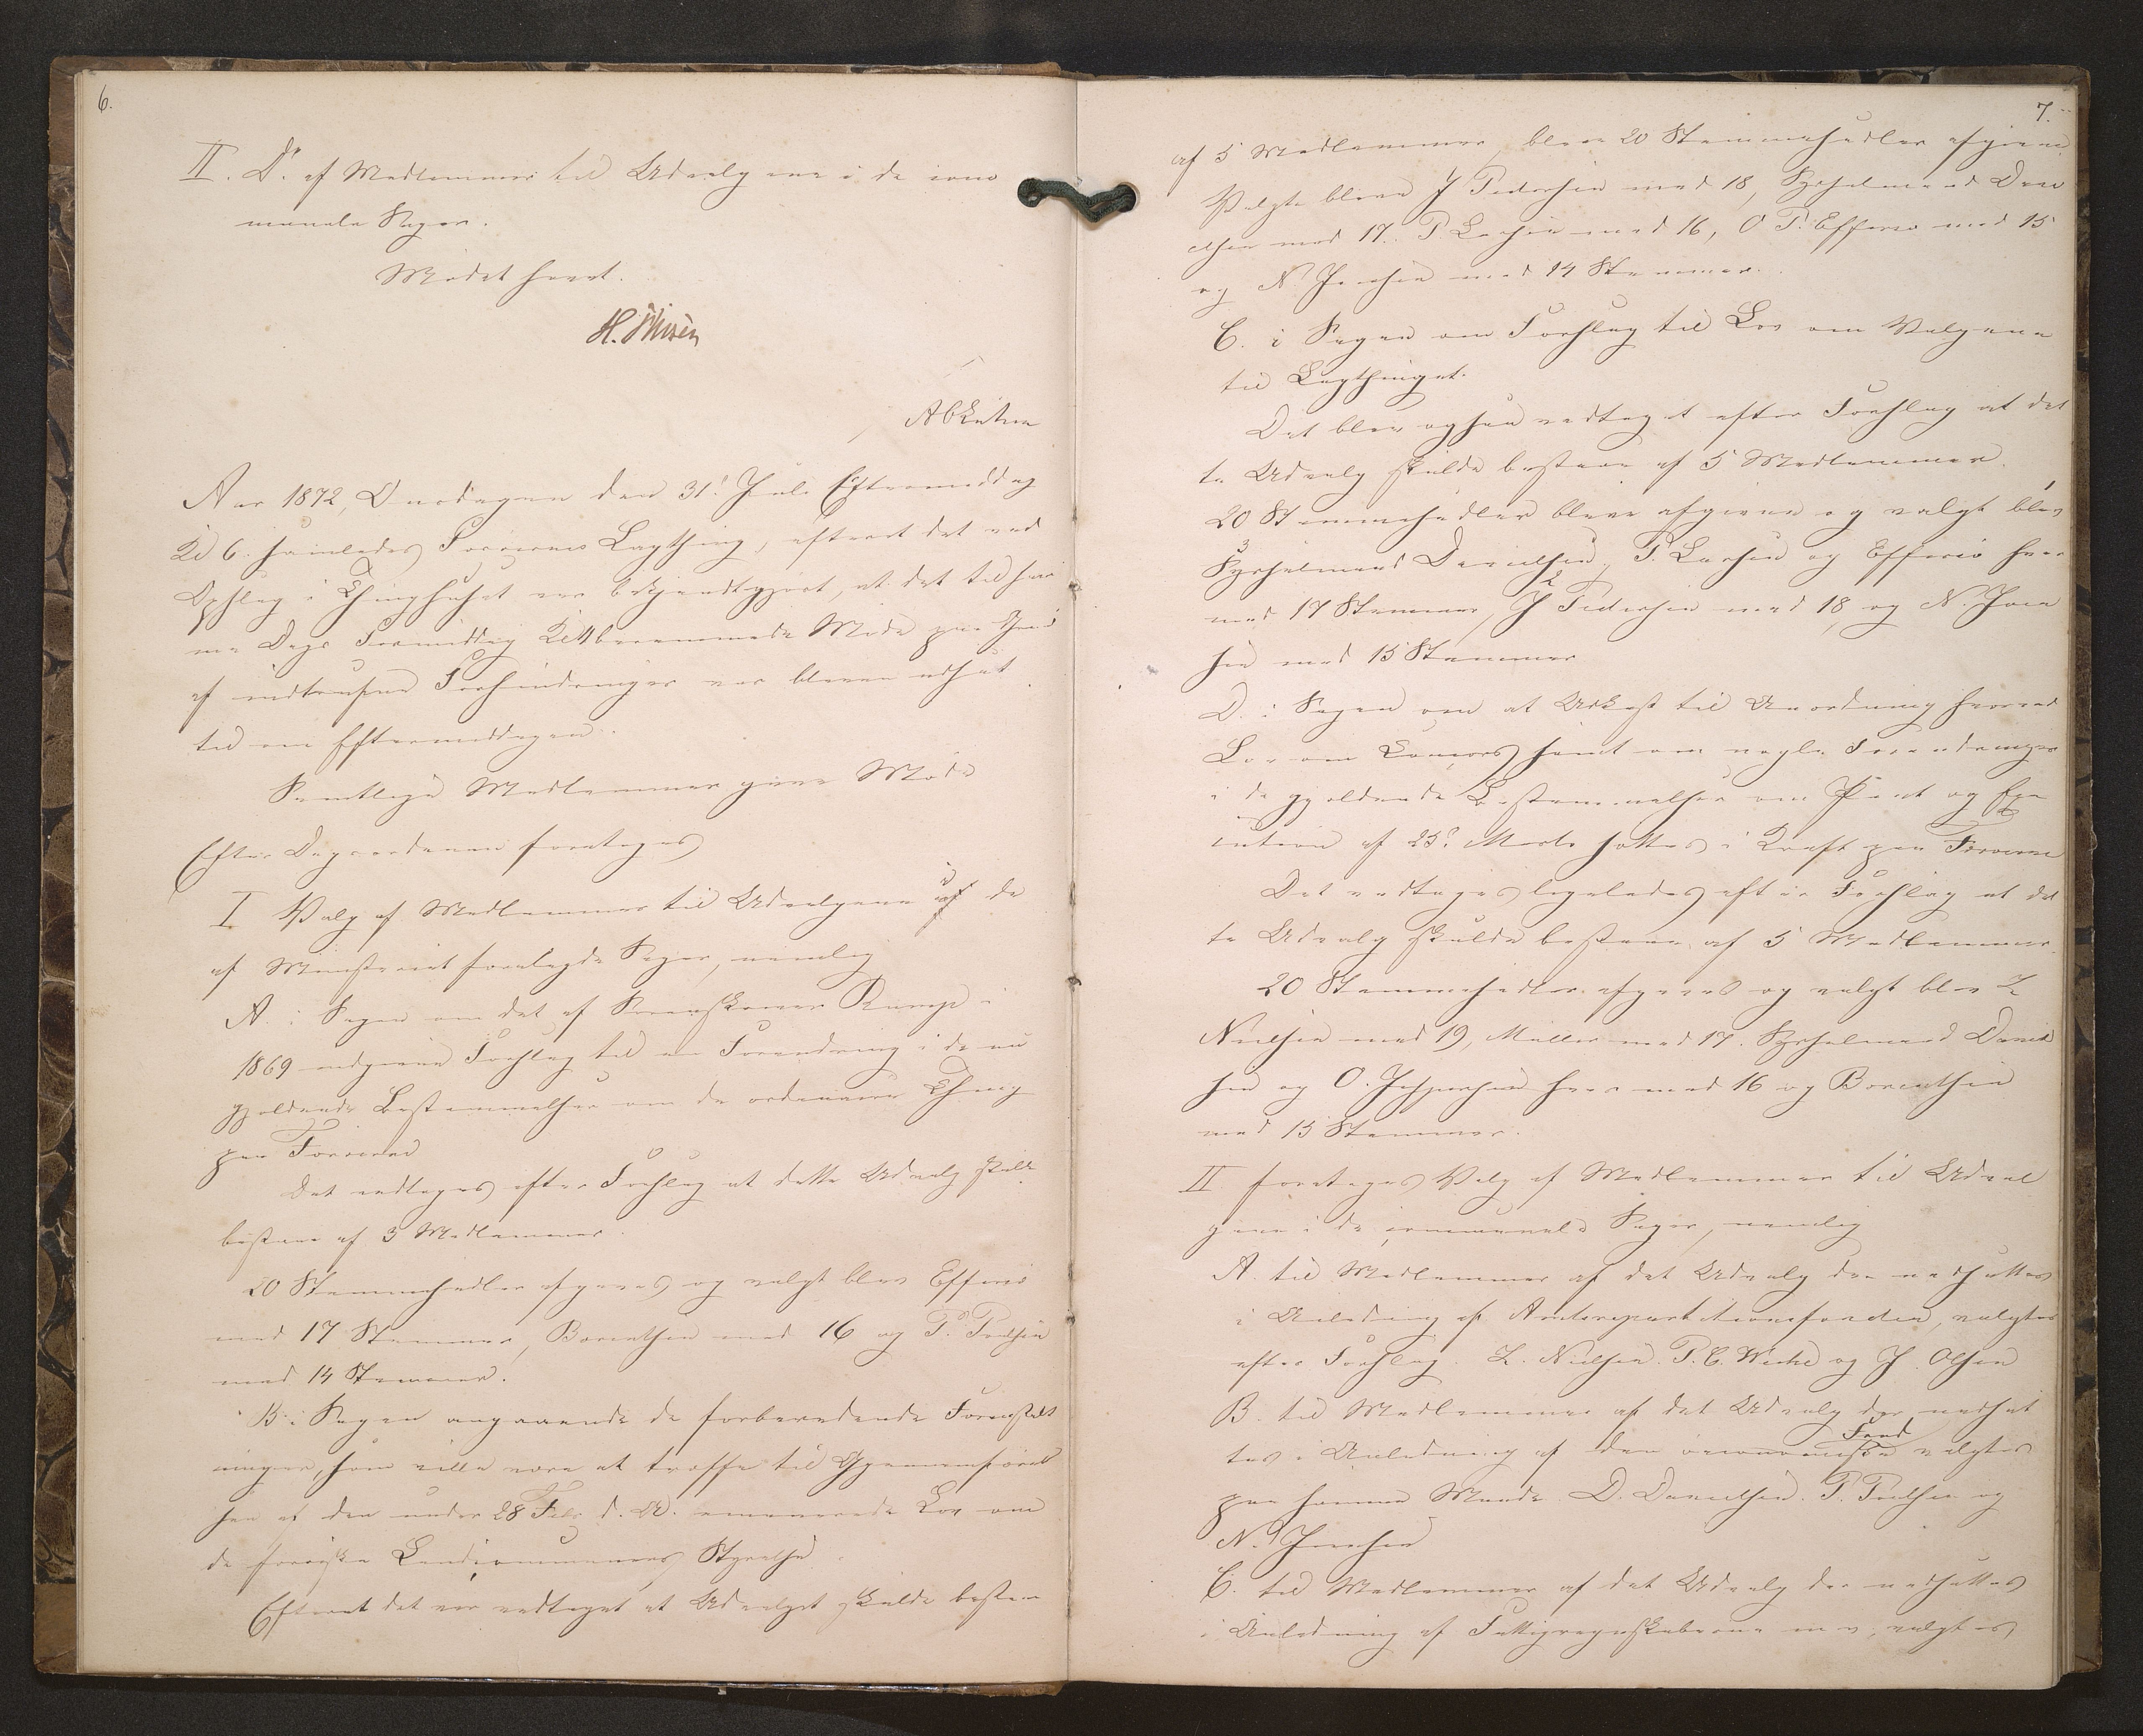 6.
II. Do. af Medlemmer til Udvalgene i de com
munale Sager.
Mødet hævet.
H.
Aar 1872, Onsdagen den 31. Juli Eftermiddag
Kl 6. samledes Færøernes Lagthing, efterat det ved
Opslag i Thinghuset var bekjendtgjort, at det til sam
me Dags Formiddag Kl 11 berammede Møde paa Grund
af indtrufne Forhindringer var bleven udsat
til om Eftermiddagen.
Samtlige Medlemmer gave Møde
Efter Dagsordenen foretoges
I Valg af Medlemmer til Udvalgene i de
af Ministeriet forelagde Sager, nemlig
A. i Sagen om det af Sorenskriver Rumpe i
1869 indgivne Forslag til en Forandring i de nu
gjældende Bestemmelser om de ordinaire Thing
paa Færøerne
Det vedtoges efter Forslag at dette Udvalg skulde
bestaae af 3 Medlemmer.
20 Stemmesedler afgaves og valgt blev Effersø
med 17 Stemmer, Berenthsen med 16 og P. Poulsen
med 14 Stemmer.
B. i Sagen angaaende de forberedende Foranstalt
ninger, som ville være at træffe til Gjennemførel
sen af den under 28 Febr d. A. emanerede Lov om
de færøiske Landcommuners Styrelse.
Efterat det var vedtaget at Udvalget skulde bestaae
7.
af 5 Medlemmer, bleve 20 Stemmesedler afgivne
Valgte bleve J Pedersen med 18, Sysselmand Dani
elsen med 17. P. Larsen med 16, O P. Effersø med 15
og N. Joensen med 14 Stemmer.
C. i Sagen om Forslag til Lov om Valgene
til Lagthinget.
Det blev ogsaa vedtaget efter Forslag at det
te Udvalg skulde bestaae af 5 Medlemmer.
20 Stemmesedler bleve afgivne og valgt blev
Sysselmand Danielsen, P. Larsen og Effersø hver
med 17 Stemmer, J Pedersen med 18, og N. Joen
sen med 15 Stemmer
D. i Sagen om at Udkast til Anordning hvorved
Lov om Concurs samt om nogle Forandringer
i de gjældende Bestemmelser om Pant og Exe
cution af 25. Marts sættes i Kraft paa Færøerne
Det vedtoges ligeledes efter Forslag at det
te Udvalg skulde bestaae af 5 Medlemmer
20 Stemmesedler afgaves og valgt blev L
Nielsen med 19, Müller med 17. Sysselmand Daniel
sen og O. Jespersen hver med 16 og Berenthsen
med 15 Stemmer.
II foretoges Valg af Medlemmer til Udval
gene i de communale Sager, nemlig
A. til Medlemmer af det Udvalg der nedsattes
i Anledning af Amtsrepartitionsfonden, valgtes
efter Forslag. L. Nielsen. P. C. Weihe og J. Olsen
B. til Medlemmer af det Udvalg der nedsat
tes i Anledning af den oeconomiske Fond valgtes
paa samme Maade D. Danielsen. P. Poulsen og
N. Joensen
C. til Medlemmer af det Udvalg der nedsattes
i Anledning af Fattigregnskaberne m v, valgtes